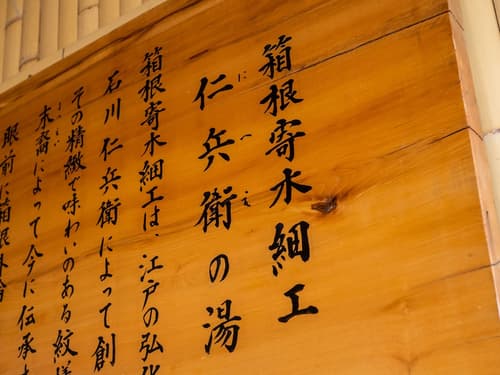 箱根寄木細工
仁兵衛の湯
にへえ
箱根寄木細工は、江戸の弘化
石川仁兵衛によって創
その精緻で味わいのある紋様
末裔によって今に伝承
まつえい
眼前に箱根外